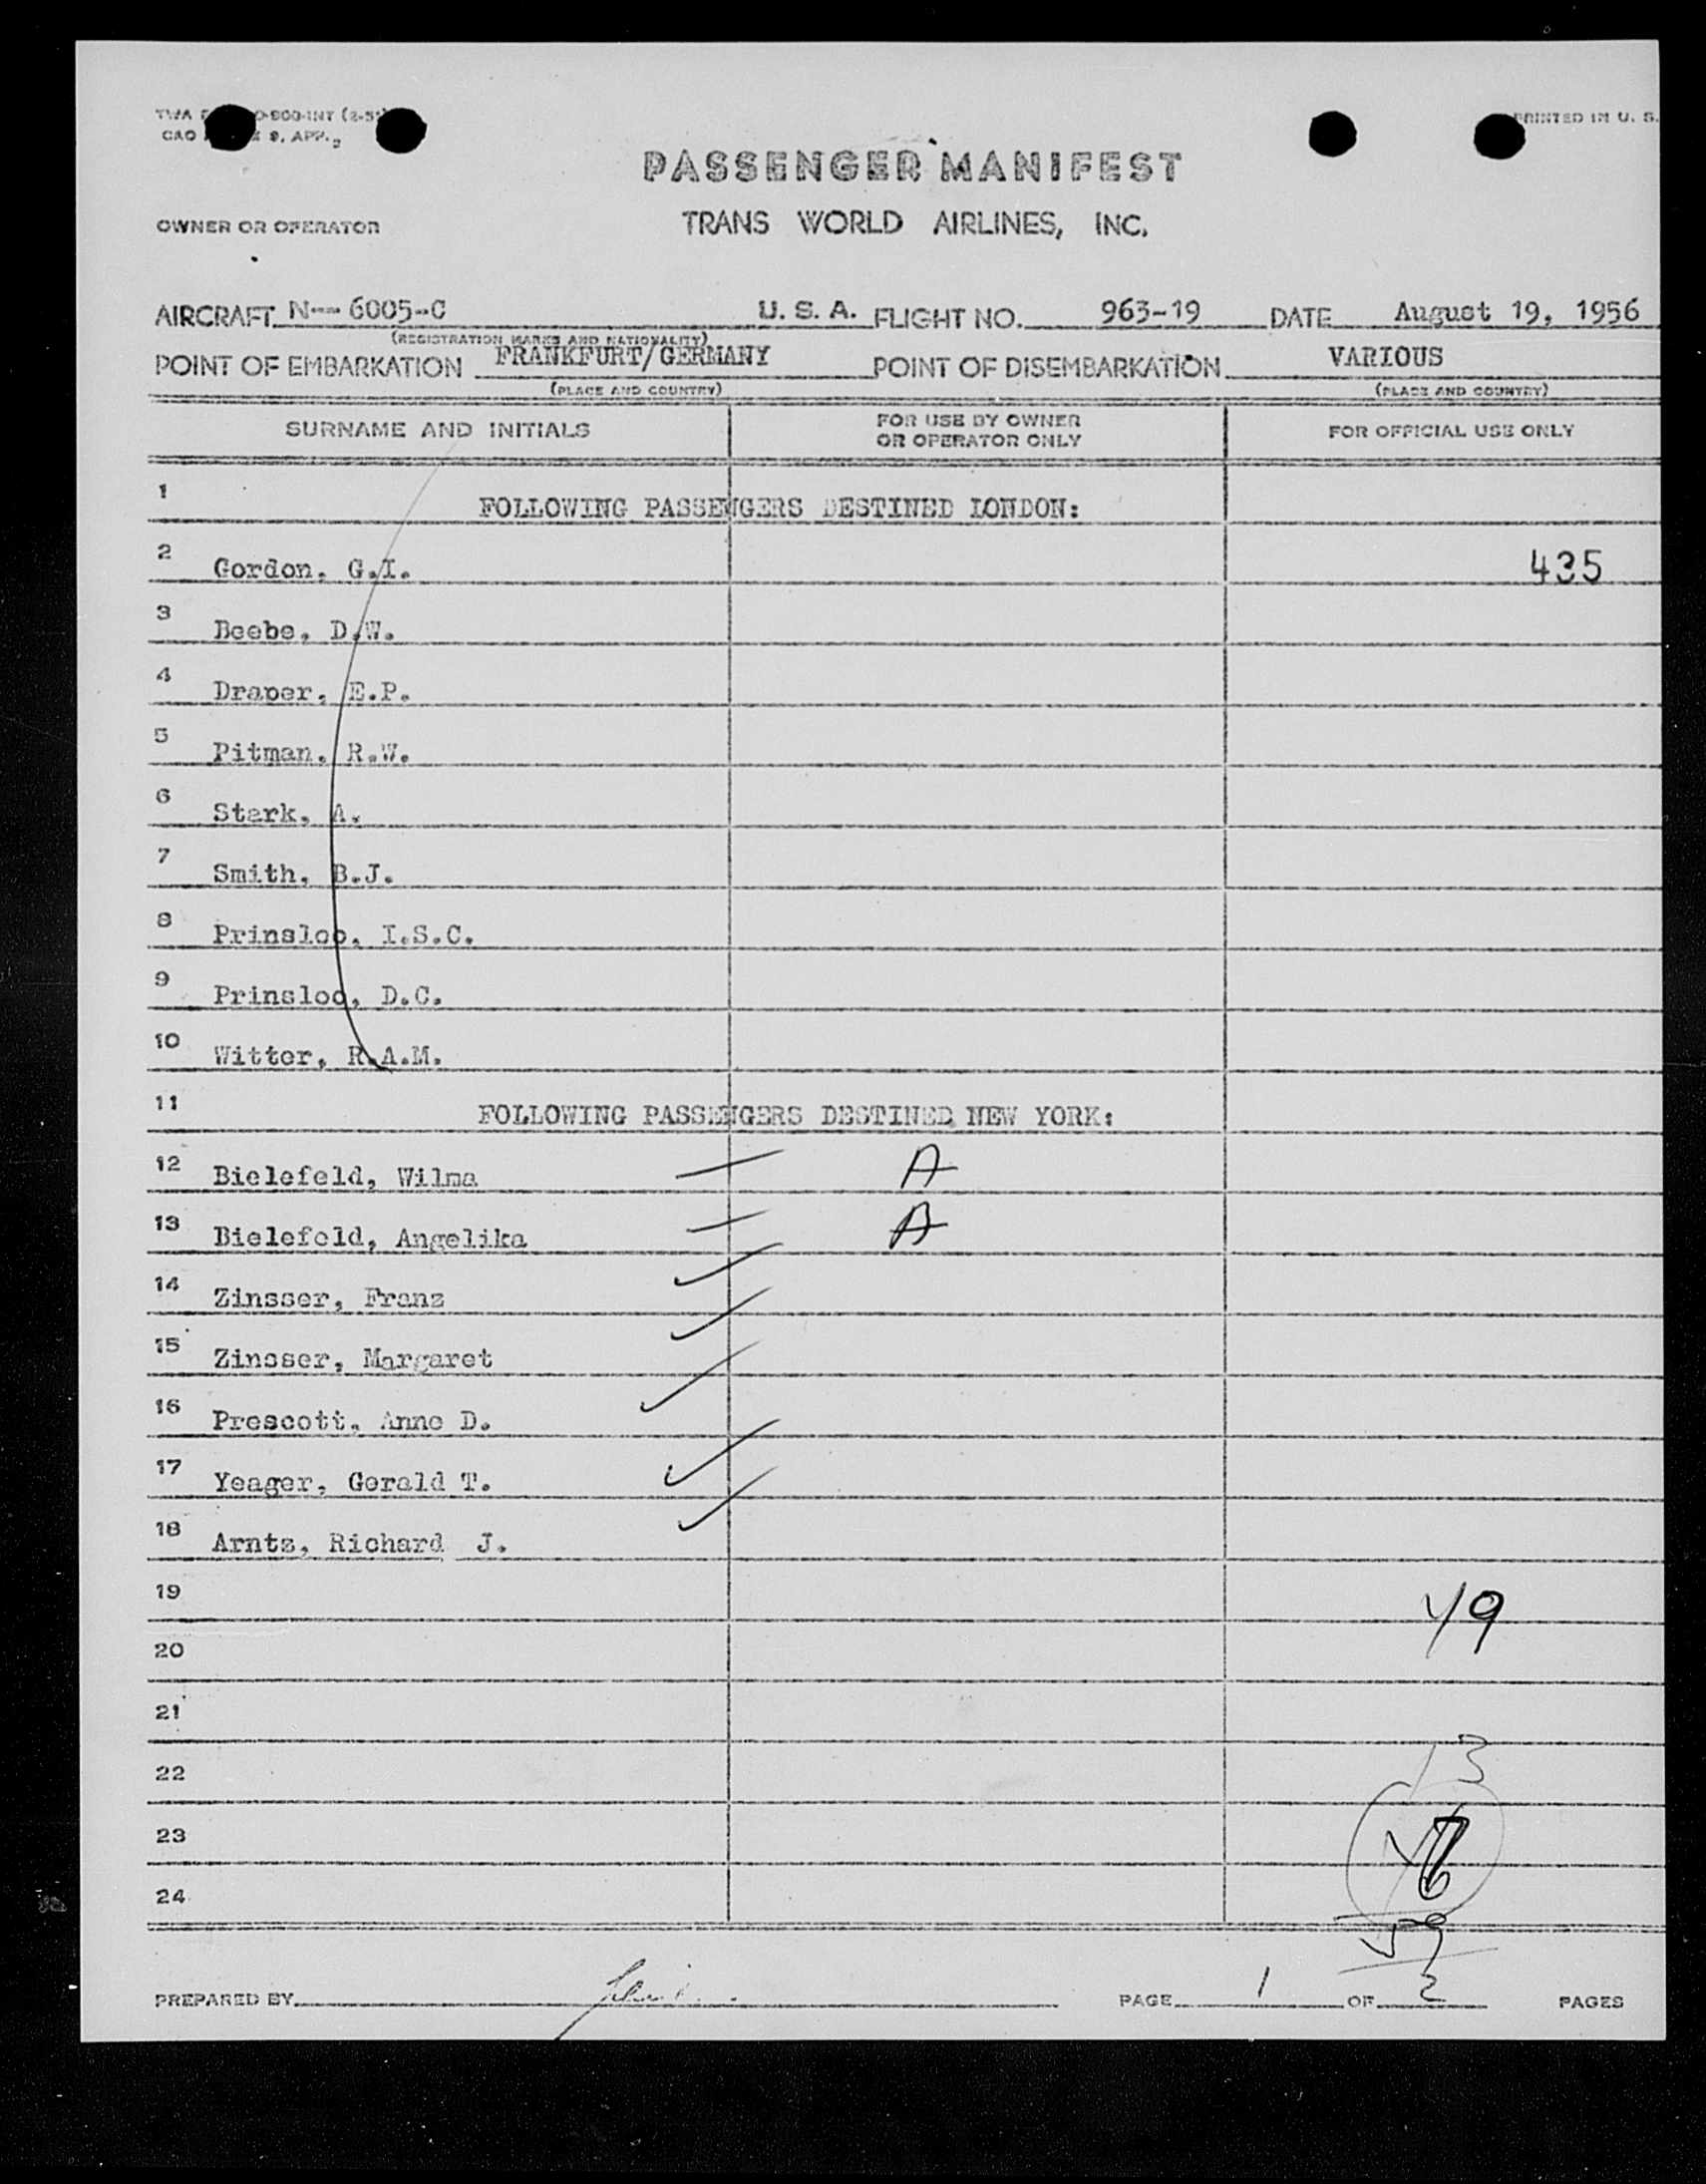 PRINTED IN U. S.
PASSENGER MANIFEST
OWNER OR OPERATOR TRANS WORLD AIRLINES, INC.
AIRCRAFT N-- 6005-C U. S. A. FLIGHT NO. 963-19 DATE August 19, 1956
(REGISTRATION MARKS AND NATIONALITY)
POINT OF EMBARKATION FRANKFURT/GERMANY POINT OF DISEMBARKATION VARIOUS
(PLACE AND COUNTRY) (PLACE AND COUNTRY)
SURNAME AND INITIALS FOR USE BY OWNER OR OPERATOR ONLY FOR OFFICIAL USE ONLY
1 FOLLOWING PASSENGERS DESTINED LONDON:
2 Gordon, G.I. 435
3 Beebe, D.W.
4 Draper, E.P.
5 Pitman, R.W.
6 Stark, A.
7 Smith, B.J.
8 Prinsloo, I.S.C.
9 Prinsloo, D.C.
10 Witter, R.A.M.
11 FOLLOWING PASSENGERS DESTINED NEW YORK:
12 Bielefeld, Wilma A
13 Bielefeld, Angelika A
14 Zinsser, Franz
15 Zinsser, Margaret
16 Prescott, Anne D.
17 Yeager, Gerald T.
18 Arntz, Richard J.
19 49
20
21
22 13
23
24
59
PREPARED BY PAGE 1 OF 2 PAGES